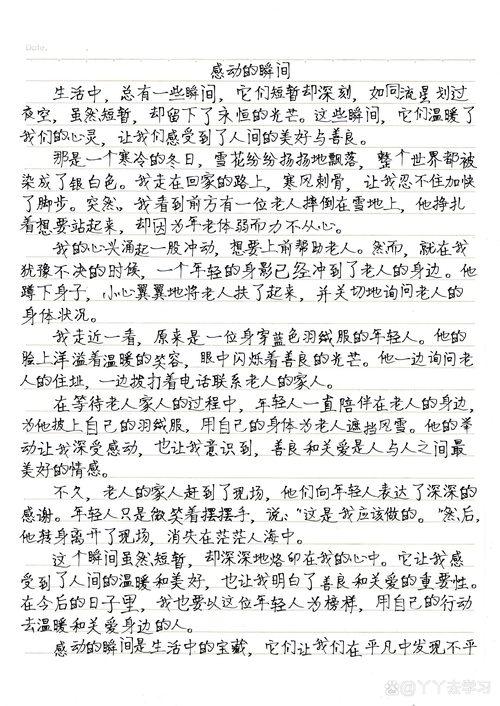 Date.
感动的瞬间
生活中，总有一些瞬间，它们短暂却深刻，如同流星划过
夜空，虽然短暂，却留下了永恒的光芒。这些瞬间，它们温暖了
我们的心灵，让我们感受到了人间的美好与善良。
那是一个寒冷的冬日，雪花纷纷扬扬地飘落，整个世界都被
染成了银白色。我走在回家的路上，寒风刺骨，让我忍不住加快
了脚步。突然，我看到前方有一位老人摔倒在雪地上，他挣扎
着想要站起来，却因为年老体弱而力不从心。
我的心头涌起一股冲动，想要上前帮助老人。然而，就在我
犹豫不决的时候，一个年轻的身影已经冲到了老人的身边。他
蹲下身子，小心翼翼地将老人扶了起来，并关切地询问老人的
身体状况。
我走近一看，原来是一位身穿蓝色羽绒服的年轻人。他的
脸上洋溢着温暖的笑容，眼中闪烁着善良的光芒。他一边询问老
人的住址，一边拨打着电话联系老人的家人。
在等待老人家人的过程中，年轻人一直陪伴在老人的身边，
为他披上自己的羽绒服，用自己的身体为老人遮挡风雪。他的举
动让我深受感动，也让我意识到，善良和关爱是人与人之间最
美好的情感。
不久，老人的家人赶到了现场，他们向年轻人表达了深深的
感谢。年轻人只是微笑着摆摆手，说："这是我应该做的。"然后，
他转身离开了现场，消失在茫茫人海中。
这个瞬间虽然短暂，却深深地烙印在我的心中。它让我感
受到了人间的温暖和美好，也让我明白了善良和关爱的重要性。
在今后的日子里，我也要以这位年轻人为榜样，用自己的行动
去温暖和关爱身边的人。
感动的瞬间是生活中的宝藏，它们让我们在平凡中发现不平
@丫丫去学习